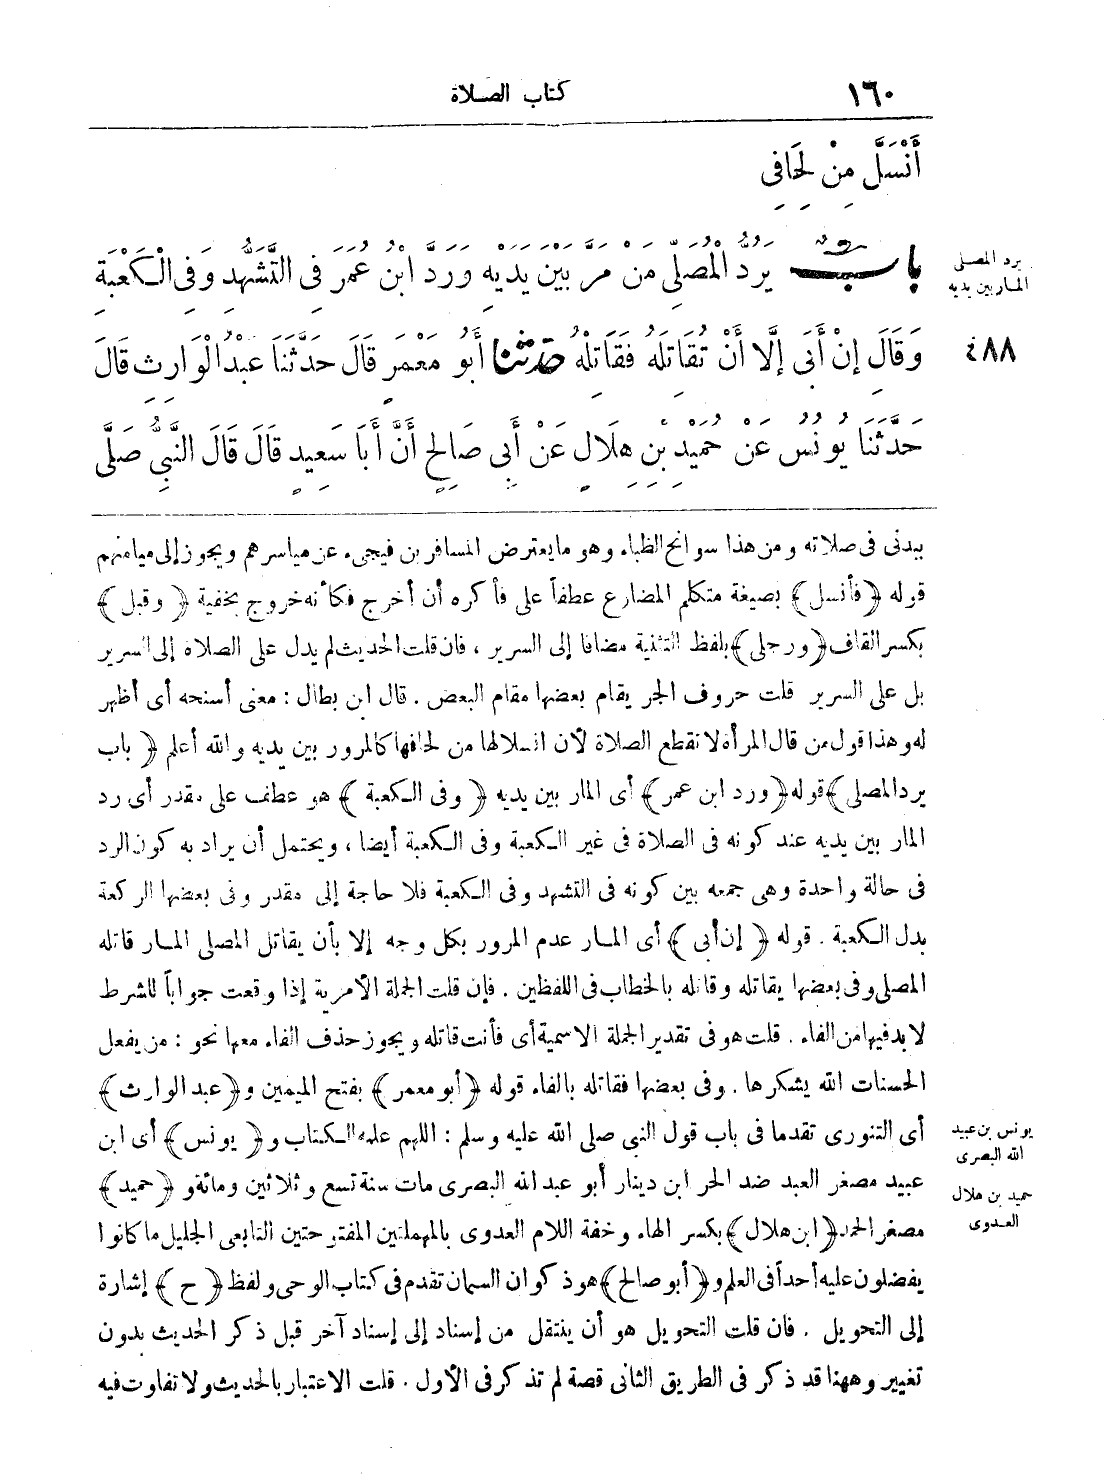 ١٦٠
كتاب الصلاة
أَنْسَلَّ مِنْ لِحَافِى
بابٌ يَرُدُّ الْمُصَلِّى مَنْ مَرَّ بَيْنَ يَدَيْهِ وَرَدَّ ابْنُ عُمَرَ فِى التَّشَهُّدِ وَفِى الْكَعْبَةِ
يرد المصلى
المار بين يديه
وَقَالَ إِنْ أَبَى إِلَّا أَنْ تُقَاتِلَهُ فَقَاتِلْهُ حَدَّثَنَا أَبُو مَعْمَرٍ قَالَ حَدَّثَنَا عَبْدُ الْوَارِثِ قَالَ
٤٨٨
حَدَّثَنَا يُونُسُ عَنْ حُمَيْدِ بْنِ هِلَالٍ عَنْ أَبِى صَالِحٍ أَنَّ أَبَا سَعِيدٍ قَالَ قَالَ النَّبِىُّ صَلَّى
ببدنى فى صلاته ومن هذا سوانح الظباء وهو ما يعترض المسافر بن فيجىء عن مياسرهم ويجوز إلى ميامنهم
قوله ﴿فأنسل﴾ بصيغة متكلم المضارع عطفاً على فأكره أن أخرج فكأنه خروج بخفية ﴿وقبل﴾
بكسر القاف ﴿ورجلى﴾ بلفظ التثنية مضافا إلى السرير، فان قلت الحديث لم يدل على الصلاة إلى السرير
بل على السرير قلت حروف الجر يقام بعضها مقام البعض. قال ابن بطال: معنى أسنحه أى أظهر
له وهذا قول من قال المرأة لا تقطع الصلاة لأن انسلالها من لحافها كالمرور بين يديه والله أعلم ﴿باب
يرد المصلى﴾ قوله ﴿ورد ابن عمر﴾ أى المار بين يديه ﴿وفى الكعبة﴾ هو عطف على مقدر أى رد
المار بين يديه عند كونه فى الصلاة فى غير الكعبة وفى الكعبة أيضا، ويحتمل أن يراد به كون الرد
فى حالة واحدة وهى جمعه بين كونه فى التشهد وفى الكعبة فلا حاجة إلى مقدر وفى بعضها الركعة
بدل الكعبة. قوله ﴿إن أبى﴾ أى المار عدم المرور بكل وجه إلا بأن يقاتل المصلى المار قاتله
المصلى وفى بعضها يقاتله وقاتله بالخطاب فى اللفظين. فإن قلت الجملة الأمرية إذا وقعت جواباً للشرط
لابد فيها من الفاء. قلت هو فى تقدير الجملة الاسمية أى فأنت قاتله ويجوز حذف الفاء معها نحو: من يفعل
الحسنات الله يشكرها. وفى بعضها فقاتله بالفاء قوله ﴿أبو معمر﴾ بفتح الميمين و﴿عبد الوارث﴾
أى التنورى تقدما فى باب قول النبى صلى الله عليه وسلم: اللهم علمه الكتاب و﴿يونس﴾ أى ابن
يونس بن عبيد
الله البصرى
عبيد مصغر العبد ضد الحر ابن دينار أبو عبد الله البصرى مات سنة تسع وثلاثين ومائة و﴿حميد﴾
حميد بن هلال
العدوى
مصغر الحمد ﴿ابن هلال﴾ بكسر الهاء وخفة اللام العدوى بالمهملتين المفتوحتين التابعى الجليل ما كانوا
يفضلون عليه أحداً فى العلم و﴿أبو صالح﴾ هو ذكوان السمان تقدم فى كتاب الوحى ولفظ ﴿ح﴾ إشارة
إلى التحويل. فان قلت التحويل هو أن ينتقل من إسناد إلى إسناد آخر قبل ذكر الحديث بدون
تغيير وههنا قد ذكر فى الطريق الثانى قصة لم تذكر فى الأول. قلت الاعتبار بالحديث ولا تفاوت فيه